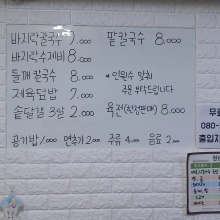 바지락칼국수 7.000
바지락수제비 8.000
들깨칼국수 8.000
제육덮밥 7.000
팥칼국수 8.000
*인원수 맞춰
주문 부탁드립니다
육전 8.000
공기밥 1.000 면추가 2.000 주류 4.000 음료 2.000
무료
080-
출입자